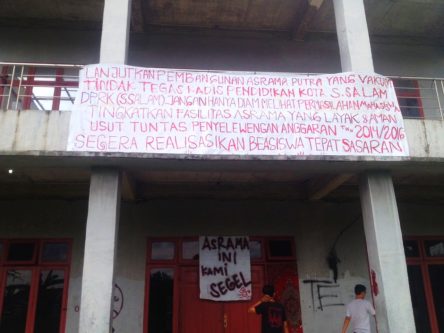 LANJUTKAN PEMBANGUNAN ASRAMA PUTRA YANG VAKUM
TINDAK TEGAS KADIS PENDIDIKAN KOTA S.SALAM
DPRK (S.SALAM) JANGAN HANYA DIAM MELIHAT PERMASALAHAN
TINGKATKAN FASILITAS ASRAMA YANG LAYAK
USUT TUNTAS PENYELEWENGAN ANGGARAN THN 2014/2016
SEGERA REALISASIKAN BEASISWA TEPAT SASARAN
ASRAMA
INI
KAMI
SEGEL
TE